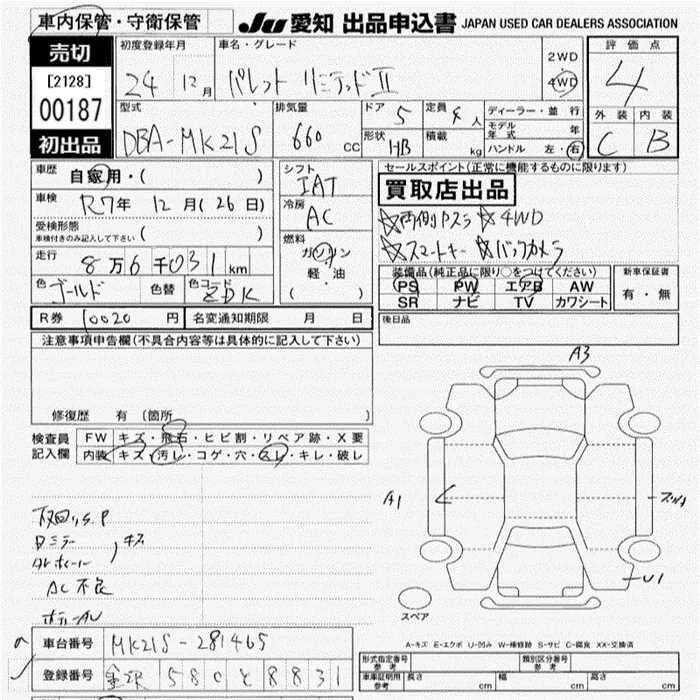 車内保管・守衛保管
JU 愛知 出品申込書 JAPAN USED CAR DEALERS ASSOCIATION
売切
[2128]
00187
初出品
初度登録年月
24 12月
車名・グレード
パレット リミテッドⅡ
2WD
4WD
評価点
4
外装 内装
C B
型式
DBA-MK21S
排気量
660 CC
ドア 5
形状 HB
定員 4人
積載 kg
ディーラー・並行
モデル年式 年
ハンドル 左・右
車歴 自家用・( )
車検 R7年 12月(26日)
受検形態
車検付きのみ記入して下さい ( )
走行 8万6千031km
色 ゴールド 色替 色コード ZDK
シフト
IAT
冷房
AC
燃料
ガソリン
軽・油
( )
セールスポイント(正常に機能するものに限ります)
買取店出品
☆両側Pスラ ☆4WD
☆スマートキー ☆バックカメラ
装備品(純正品に限り○をつけてください)
PS PW エアB AW
SR ナビ TV カワシート
新車保証書
有・無
R券 10020円 名変通知期限 月 日
後日品
注意事項申告欄(不具合内容等は具体的に記入して下さい)
修復歴 有 (箇所 )
検査員
記入欄
FW キズ・飛石・ヒビ割・リペア跡・X要
内装 キズ・汚レ・コゲ・穴・スレ・キレ・破レ
A3
A1
U1
キズ
AC不良
スペア
A-キズ E-エクボ U-凹み W-補修跡 S-サビ C-腐食 XX-交換済
車台番号 MK21S-281465
登録番号 金沢 580 と 8831
形式指定番号
参考
類別区分番号
参考
車庫証明用
参考
長さ cm 幅 cm 高さ cm